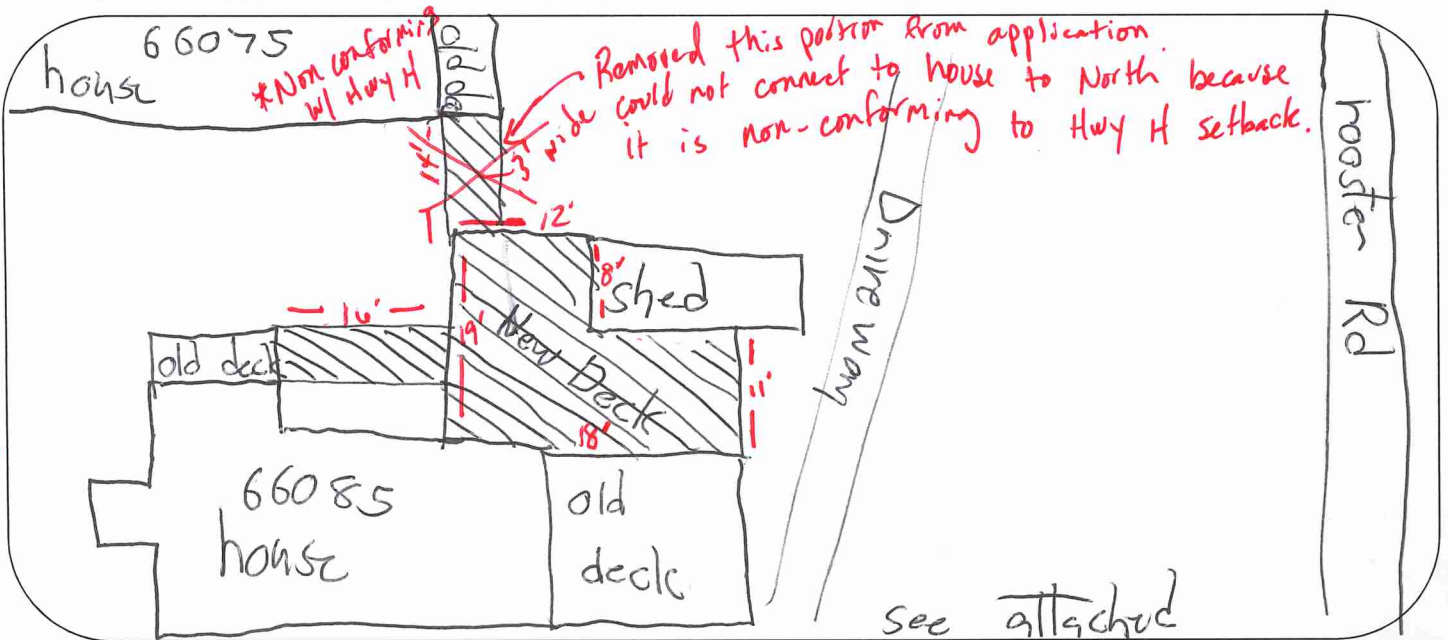 66075
house
*Non conforming
w/ Hwy H
old de
Removed this portion from application
3' wide could not connect to house to North because
it is non-conforming to Hwy H setback.
12'
8'
shed
16'
19'
New Deck
11'
18'
old deck
66085
house
old
deck
Driveway
Rd
see attached